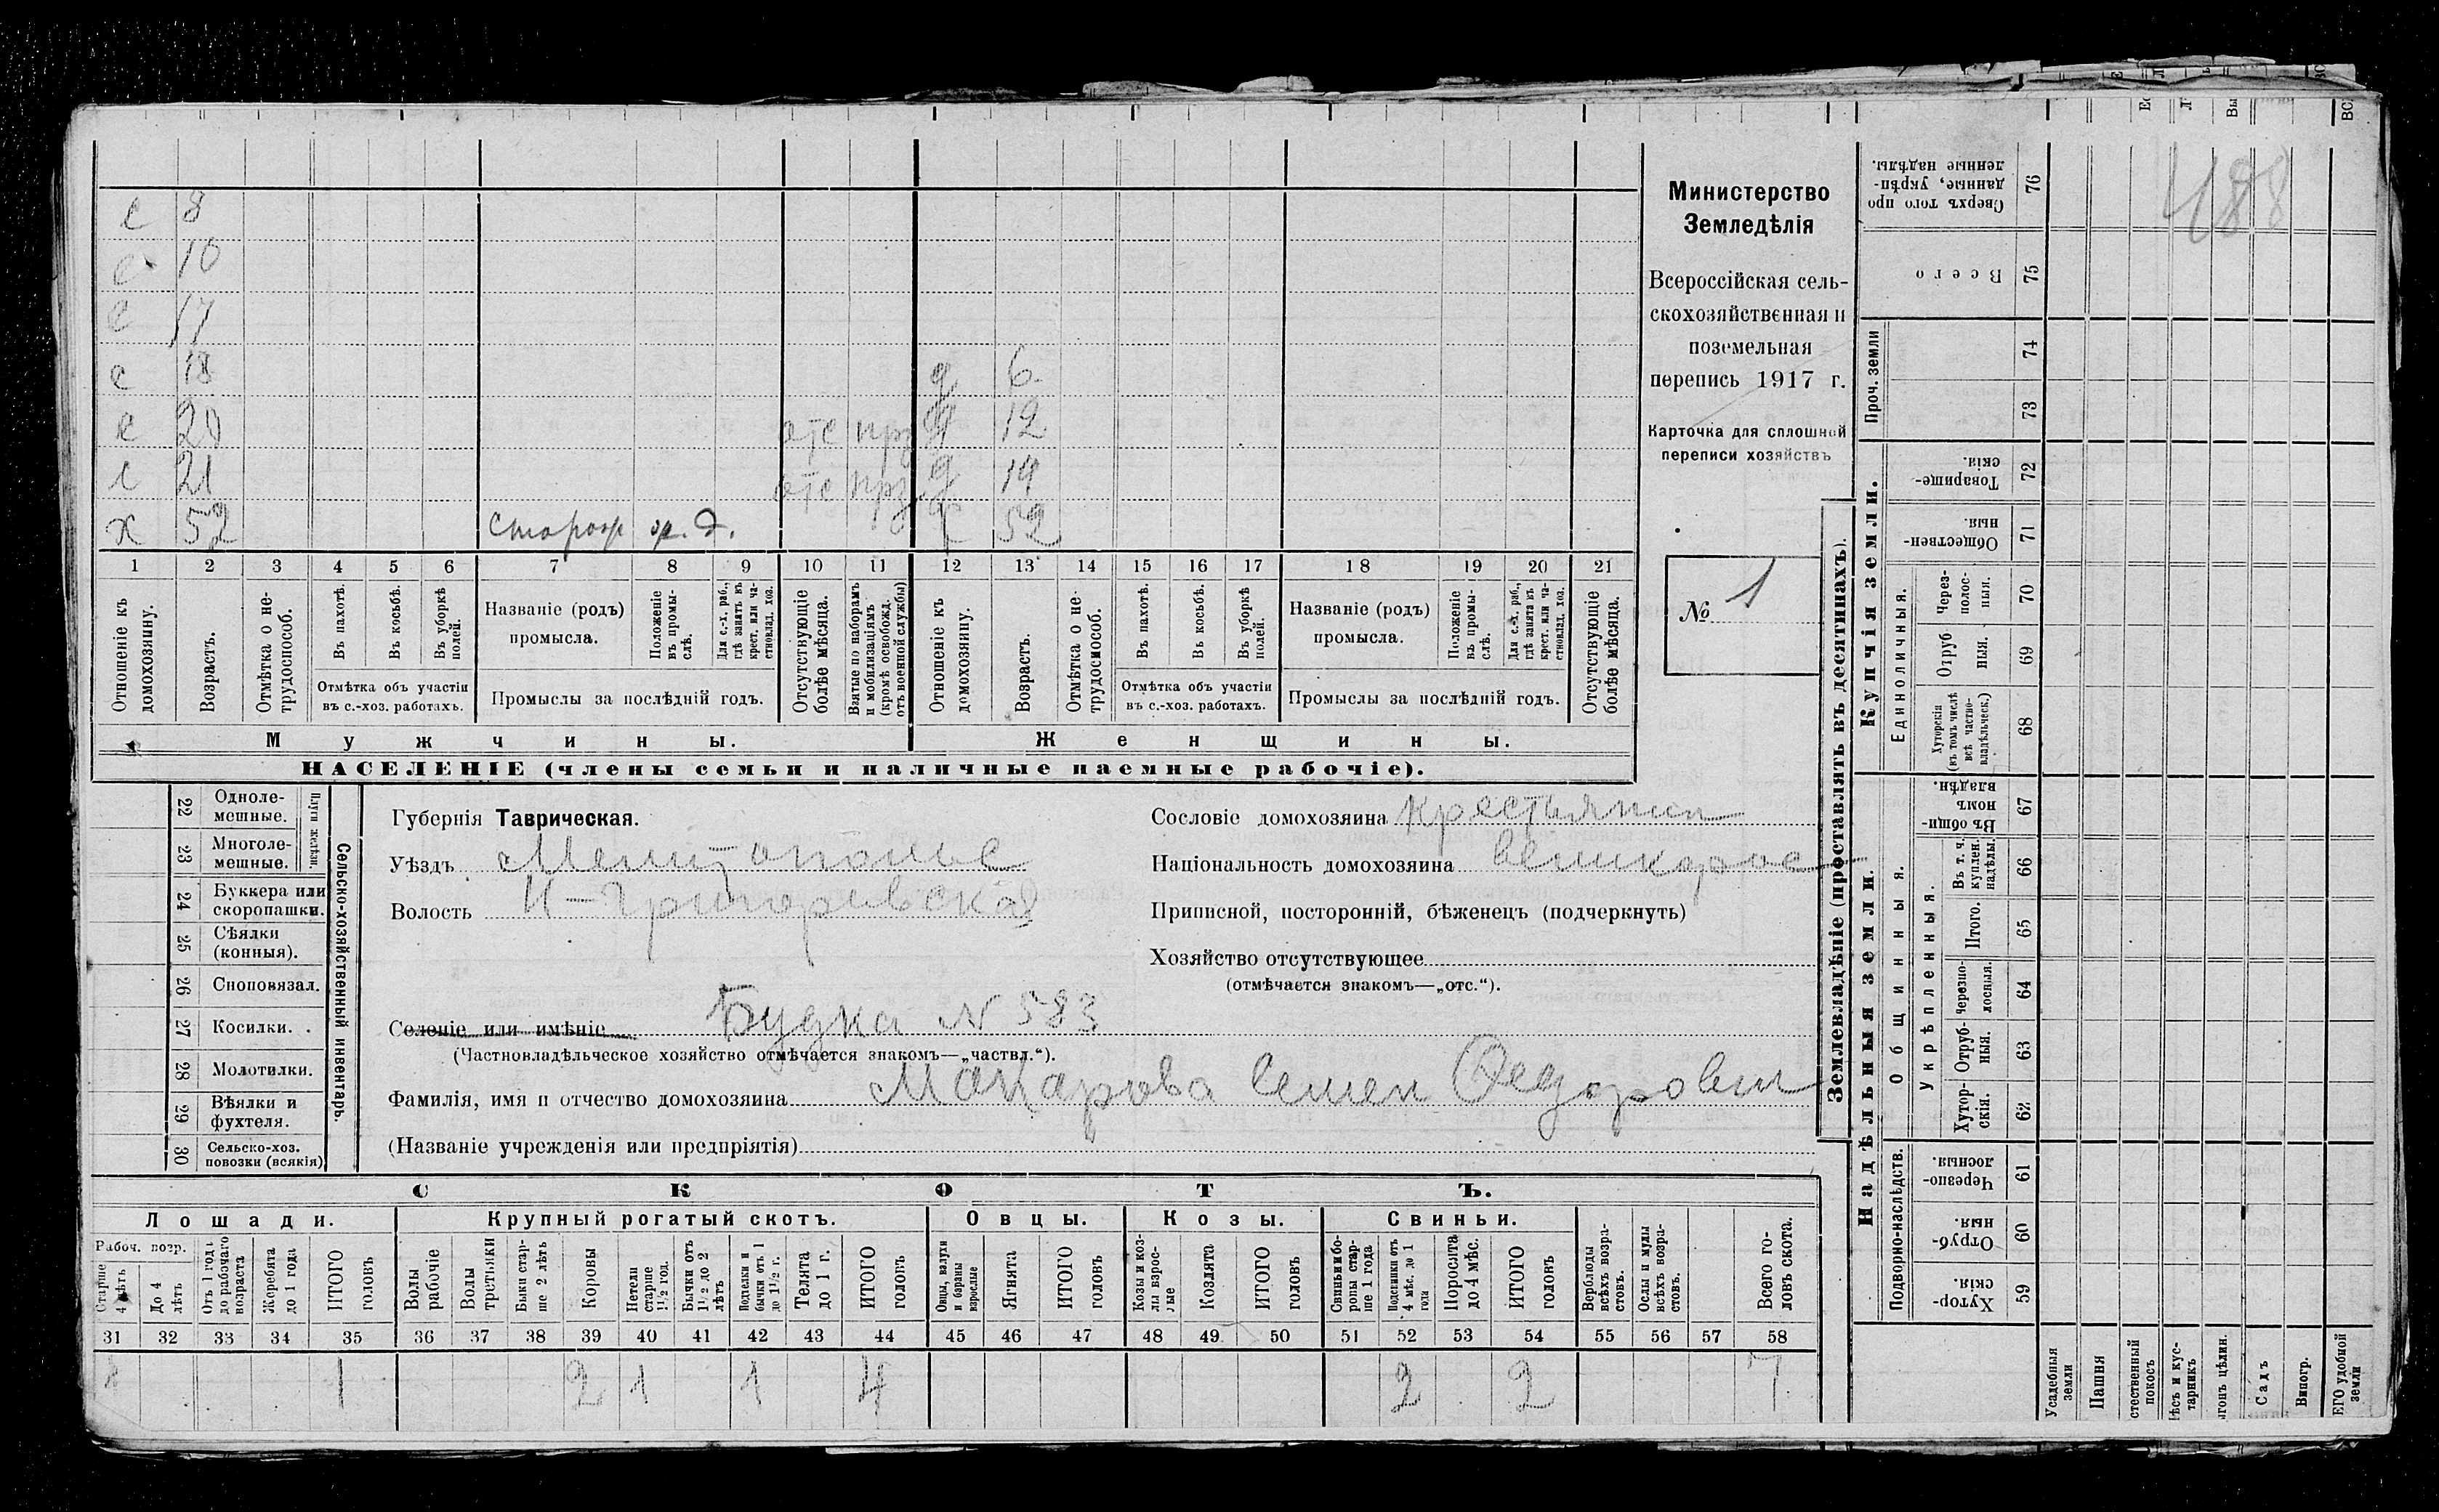 488
Министерство
Земледѣлія
Всероссійская сель-
скохозяйственная и
поземельная
перепись 1917 г.
Карточка для сплошной
переписи хозяйствъ
№ 1
с 8
с 10
с 17
с 18 д 6
с 20 отс прз д 12
с 21 отс прз д 19
х 52 сторож ж. д. 52
1 2 3 4 5 6 7 8 9 10 11 12 13 14 15 16 17 18 19 20 21
Отношеніе къ домохозяину.
Возрастъ.
Отмѣтка о не-трудоспособ.
Въ пахотѣ.
Въ косьбѣ.
Въ уборкѣ полей.
Отмѣтка объ участіи въ с.-хоз. работахъ.
Названіе (родъ) промысла.
Положеніе въ промы-слѣ.
Для с.-х. раб., гдѣ занятъ въ крест. или ча-стновлад. хоз.
Промыслы за послѣдній годъ.
Отсутствующіе болѣе мѣсяца.
Взятые по наборамъ и мобилизаціямъ (кромѣ освобожд. отъ военной службы)
Отношеніе къ домохозяину.
Возрастъ.
Отмѣтка о не-трудоспособ.
Въ пахотѣ.
Въ косьбѣ.
Въ уборкѣ полей.
Отмѣтка объ участіи въ с.-хоз. работахъ.
Названіе (родъ) промысла.
Положеніе въ промы-слѣ.
Для с.-х. раб., гдѣ занята въ крест. или ча-стновлад. хоз.
Промыслы за послѣдній годъ.
Отсутствующіе болѣе мѣсяца.
Мужчины. Женщины.
НАСЕЛЕНІЕ (члены семьи и наличные наемные рабочіе).
Сельско-хозяйственный инвентарь.
22 Одноле-мешные.
23 Многоле-мешные.
24 Буккера или скоропашки.
25 Сѣялки (конныя).
26 Сноповязал.
27 Косилки.
28 Молотилки.
29 Вѣялки и фухтеля.
30 Сельско-хоз. повозки (всякія)
Губернія Таврическая.
Уѣздъ Мелитополье
Волость Н-Григорьевская
Селеніе или имѣніе Будка N 583
(Частновладѣльческое хозяйство отмѣчается знакомъ—„частвл.“).
Фамилія, имя и отчество домохозяина Семен Федорович
(Названіе учрежденія или предпріятія)
Сословіе домохозяина крестьянин
Національность домохозяина великорос
Приписной, посторонній, бѣженецъ (подчеркнуть)
Хозяйство отсутствующее
(отмѣчается знакомъ—„отс.“).
СКОТЪ.
Лошади. Крупный рогатый скотъ. Овцы. Козы. Свиньи.
Рабоч. возр.
Старше 4 лѣтъ
До 4 лѣтъ
Отъ 1 года до рабочаго возраста
Жеребята до 1 года
ИТОГО головъ
Волы рабочіе
Волы третьяки
Быки стар-ше 2 лѣтъ
Коровы
Нетели старше 1½ год.
Бычки отъ 1½ до 2 лѣтъ
Подтелки и бычки отъ 1 до 1½ г.
Телята до 1 г.
ИТОГО головъ
Овцы, валухи и бараны взрослые
Ягнята
ИТОГО головъ
Козы и коз-лы взрос-лые
Козлята
ИТОГО головъ
Свиньи и бо-ровы стар-ше 1 года
Подсвинки отъ 4 мѣс. до 1 года
Поросята до 4 мѣс.
ИТОГО головъ
Верблюды всѣхъ возра-стовъ.
Ослы и мулы всѣхъ возра-стовъ.
Всего го-ловъ скота.
31 32 33 34 35 36 37 38 39 40 41 42 43 44 45 46 47 48 49 50 51 52 53 54 55 56 57 58
1 1 2 1 1 4 2 2 7
Землевладѣніе (проставлять въ десятинахъ).
Надѣльныя земли.
Купчія земли.
Проч. земли
Подворно-наслѣдств.
Общинныя.
Укрѣпленныя.
Единоличныя.
76 Сверхъ того про данные, укрѣп-ленные надѣлы.
75 Всего
74
73
72 Товарище-скія.
71 Обществен-ныя.
70 Через-полос-ныя.
69 Отруб ныя.
68 Хуторскія (въ томъ числѣ всѣ частно-владѣльческ.)
67 Въ общи-номъ владѣн.
66 Въ т. ч. куплен. надѣлы.
65 Итого.
64 Черезпо-лосныя.
63 Отруб-ныя.
62 Хутор-скія.
61 Черезпо-лосныя.
60 Отруб-ныя.
59 Хутор-скія.
Усадебныя земли
Пашня
стественный покосъ
ѣсъ и кус-тарникъ
ыгонъ цѣлин.
Садъ
Виногр.
ЕГО удобной земли